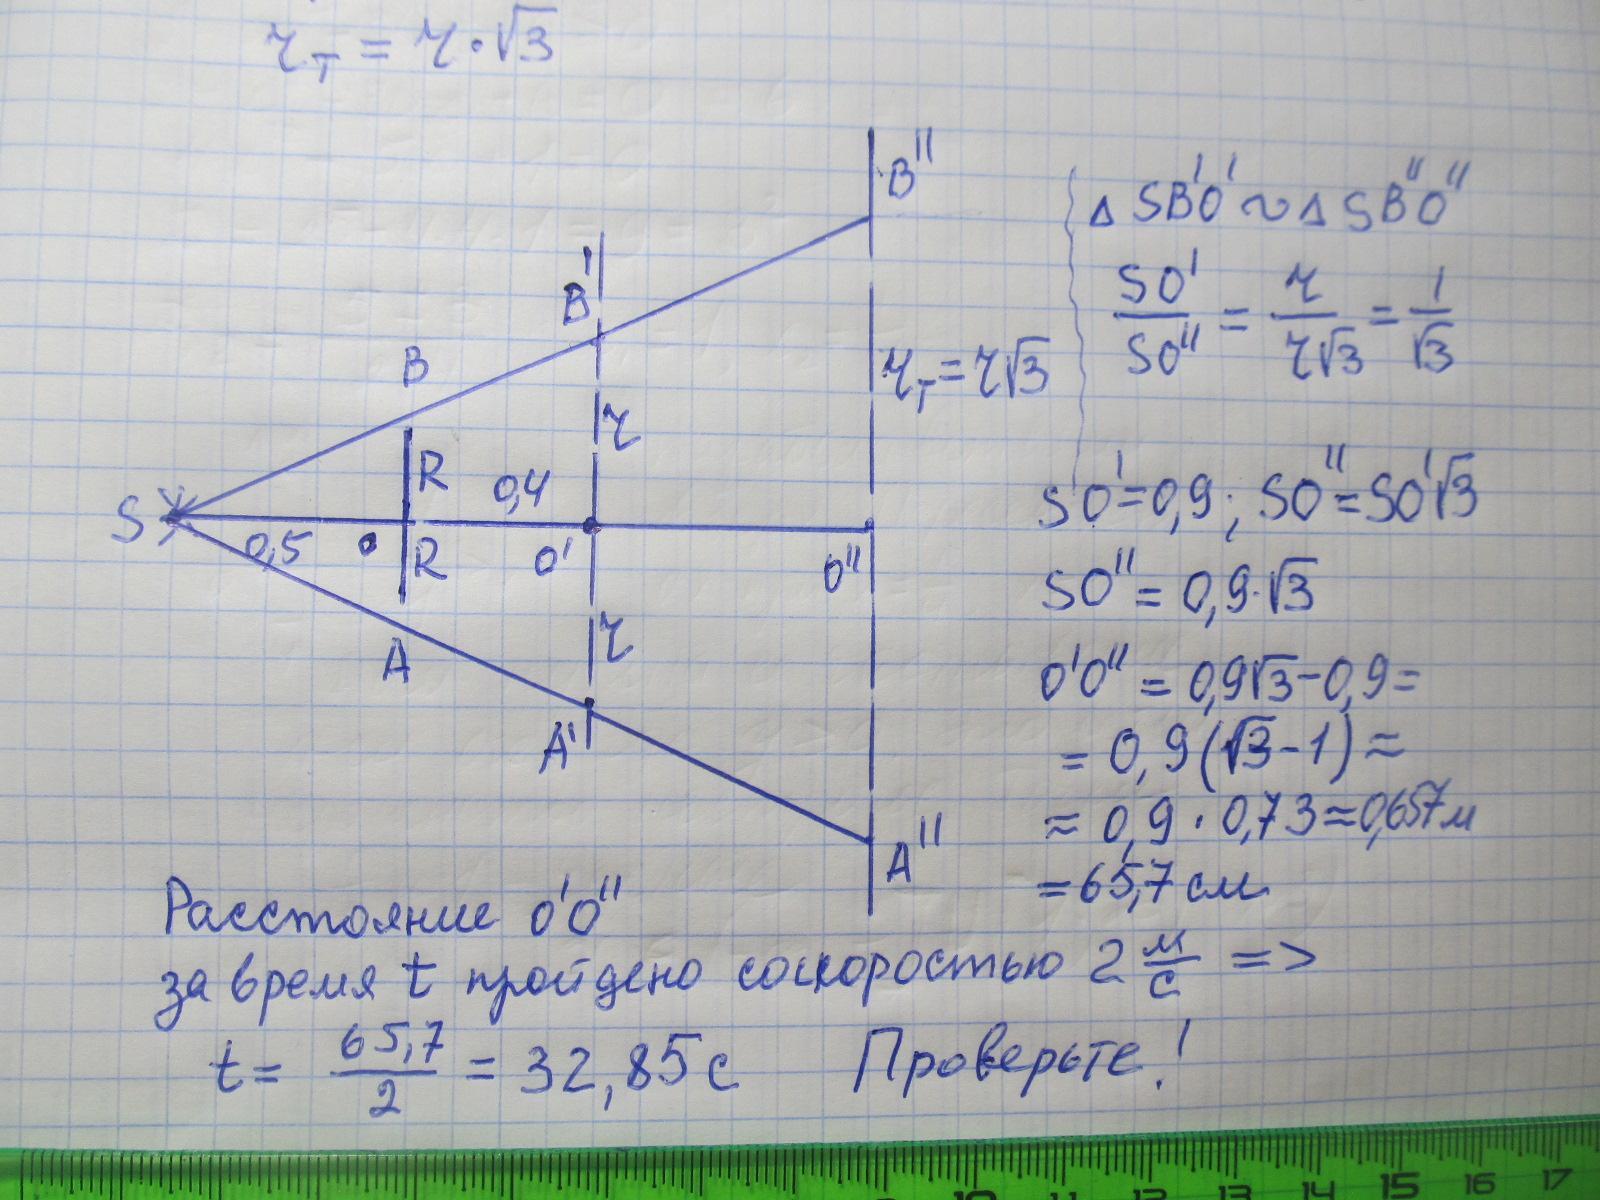 r_T = r·√3
B''
B'
B
r_T = r√3
R
r
0,4
S
0,5
R
O'
O''
r
A
A'
A''
Δ SB'O' ~ Δ SB''O''
SO'/SO'' = r/r√3 = 1/√3
SO' = 0,9 ; SO'' = SO'√3
SO'' = 0,9·√3
O'O'' = 0,9√3 - 0,9 =
= 0,9(√3 - 1) ≈
≈ 0,9 · 0,73 ≈ 0,657 м
= 65,7 см
Расстояние O'O''
за время t пройдено со скоростью 2 м/с =>
t = 65,7/2 = 32,85 с Проверьте!
11 12 13 14 15 16 17